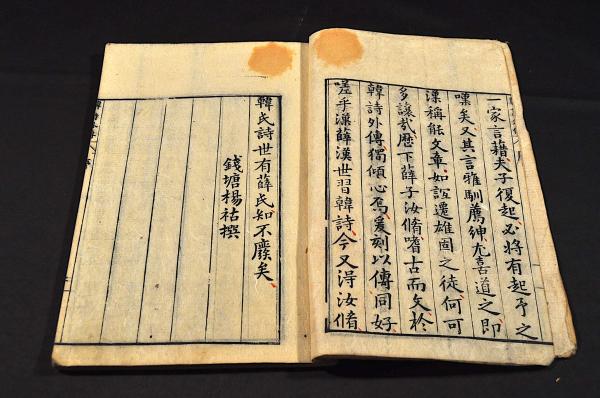 一家言藉夫子復起必將有起予之
嘆矣又其言雅馴薦紳尤喜道之即
漢稱能文章如誼遷雄固之徒何可
多讓哉歷下薛子汝脩嗜古而文於
韓詩外傳獨傾心焉爰刻以傳同好
嗟乎漢薛漢世習韓詩今又得汝脩
韓氏詩世有薛氏知不廢矣
錢塘楊祜撰